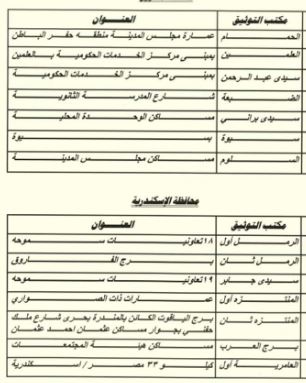 مكتب التوثيق العنوان
الحمام عمارة مجلس المدينة منطقة حفر الباطن
العلمين بمبنى مركز الخدمات الحكومية بالعلمين
سيدى عبد الرحمن بمبنى مركز الخدمات الحكومية
الضبعة شارع المدرسة الثانوية
سيدى برانى مساكن الوحدة المحلية
سيوة بسيوة
السلوم مساكن مجلس المدينة
محافظة الإسكندرية
مكتب التوثيق العنوان
الرمل أول ١٨ تعاونيات سموحه
الرمل ثان برج الفاروق
سيدى جابر ١٩ تعاونيات سموحه
المنتزه أول عمارات ذات الصوارى
المنتزه ثان برج الياقوت الكائن بالمندرة بحرى شارع ملك حفنى بجوار مساكن عثمان احمد عثمان
برج العرب مساكن هيئة المجتمعات
العامرية أول كيلو ٣٣ مصر / اسكندرية